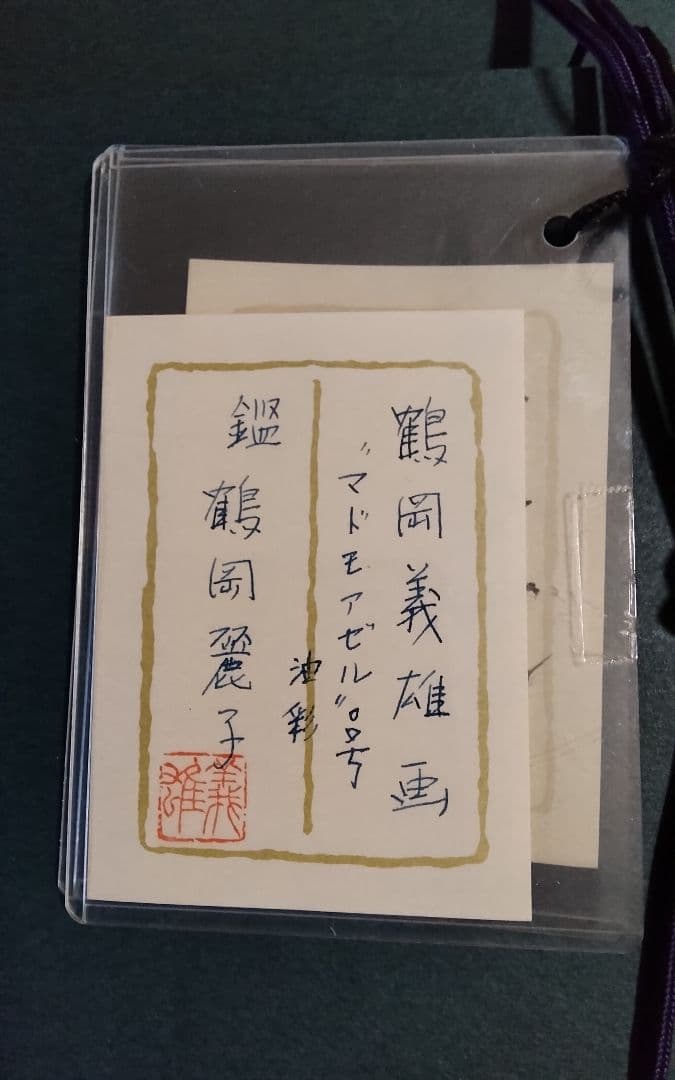 鶴岡義雄画
"マドモアゼル"0号
油彩
鑑 鶴岡麗子
義雄